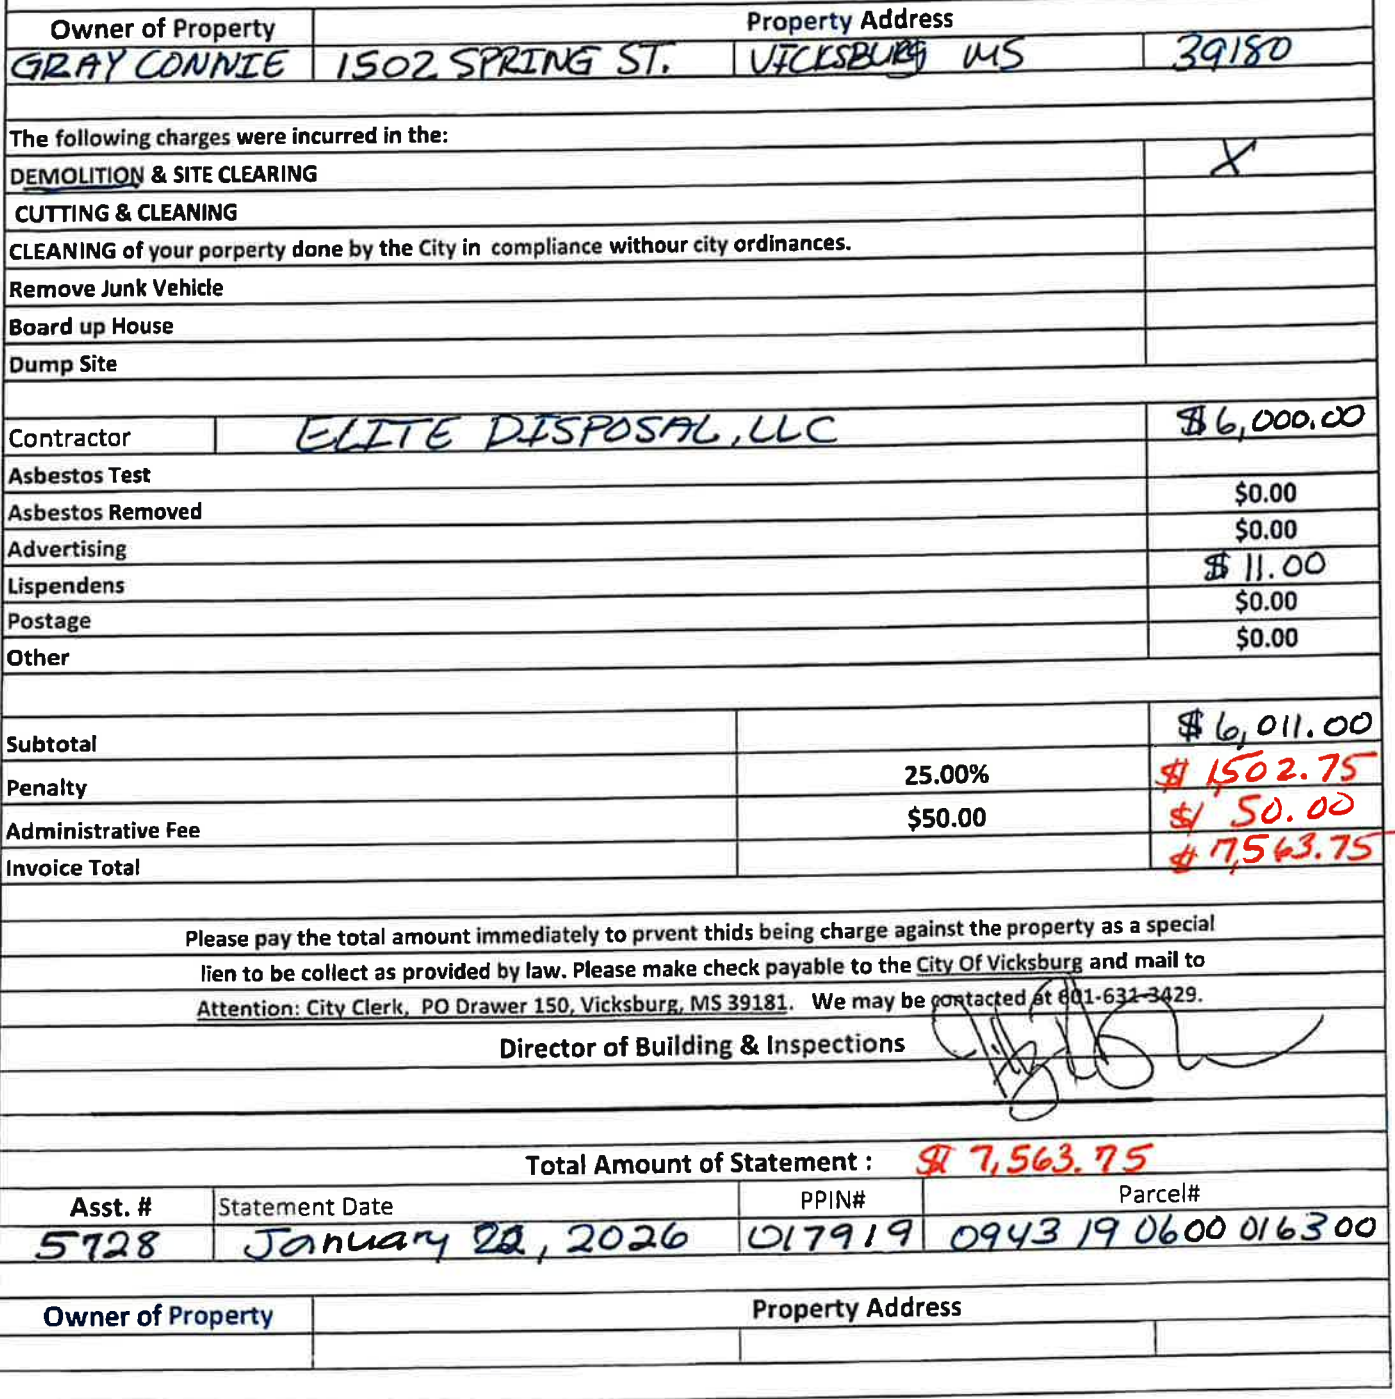 Owner of Property Property Address
GRAY CONNIE 1502 SPRING ST. VICKSBURG MS 39180
The following charges were incurred in the:
DEMOLITION & SITE CLEARING X
CUTTING & CLEANING
CLEANING of your porperty done by the City in compliance withour city ordinances.
Remove Junk Vehicle
Board up House
Dump Site
Contractor ELITE DISPOSAL, LLC $6,000.00
Asbestos Test
Asbestos Removed $0.00
Advertising $0.00
Lispendens $ 11.00
Postage $0.00
Other $0.00
Subtotal $ 6,011.00
Penalty 25.00% $ 1,502.75
Administrative Fee $50.00 $ 50.00
Invoice Total $ 7,563.75
Please pay the total amount immediately to prvent thids being charge against the property as a special
lien to be collect as provided by law. Please make check payable to the City Of Vicksburg and mail to
Attention: City Clerk, PO Drawer 150, Vicksburg, MS 39181. We may be contacted at 601-631-3429.
Director of Building & Inspections
Total Amount of Statement : $ 7,563.75
Asst. # Statement Date PPIN# Parcel#
5728 January 22, 2026 017919 0943 19 0600 016300
Owner of Property Property Address